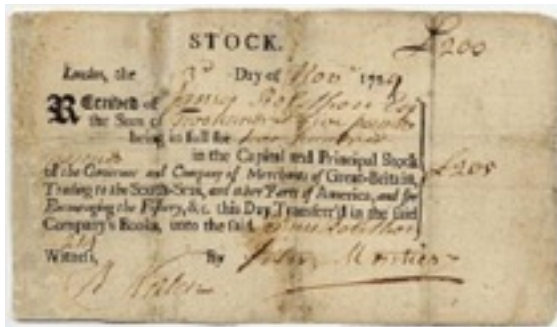 STOCK.
£200
London, the 3d Day of Novr 1729
Received of
the Sum of Two hundred five pounds
being in full for two hundred
pounds in the Capital and Principal Stock
of the Governor and Company of Merchants of Great-Britain, £205
Trading to the South-Seas, and other Parts of America, and for
Encouraging the Fishery, &c. this Day Transferr'd in the said
Company's Books, unto the said
Witness, By